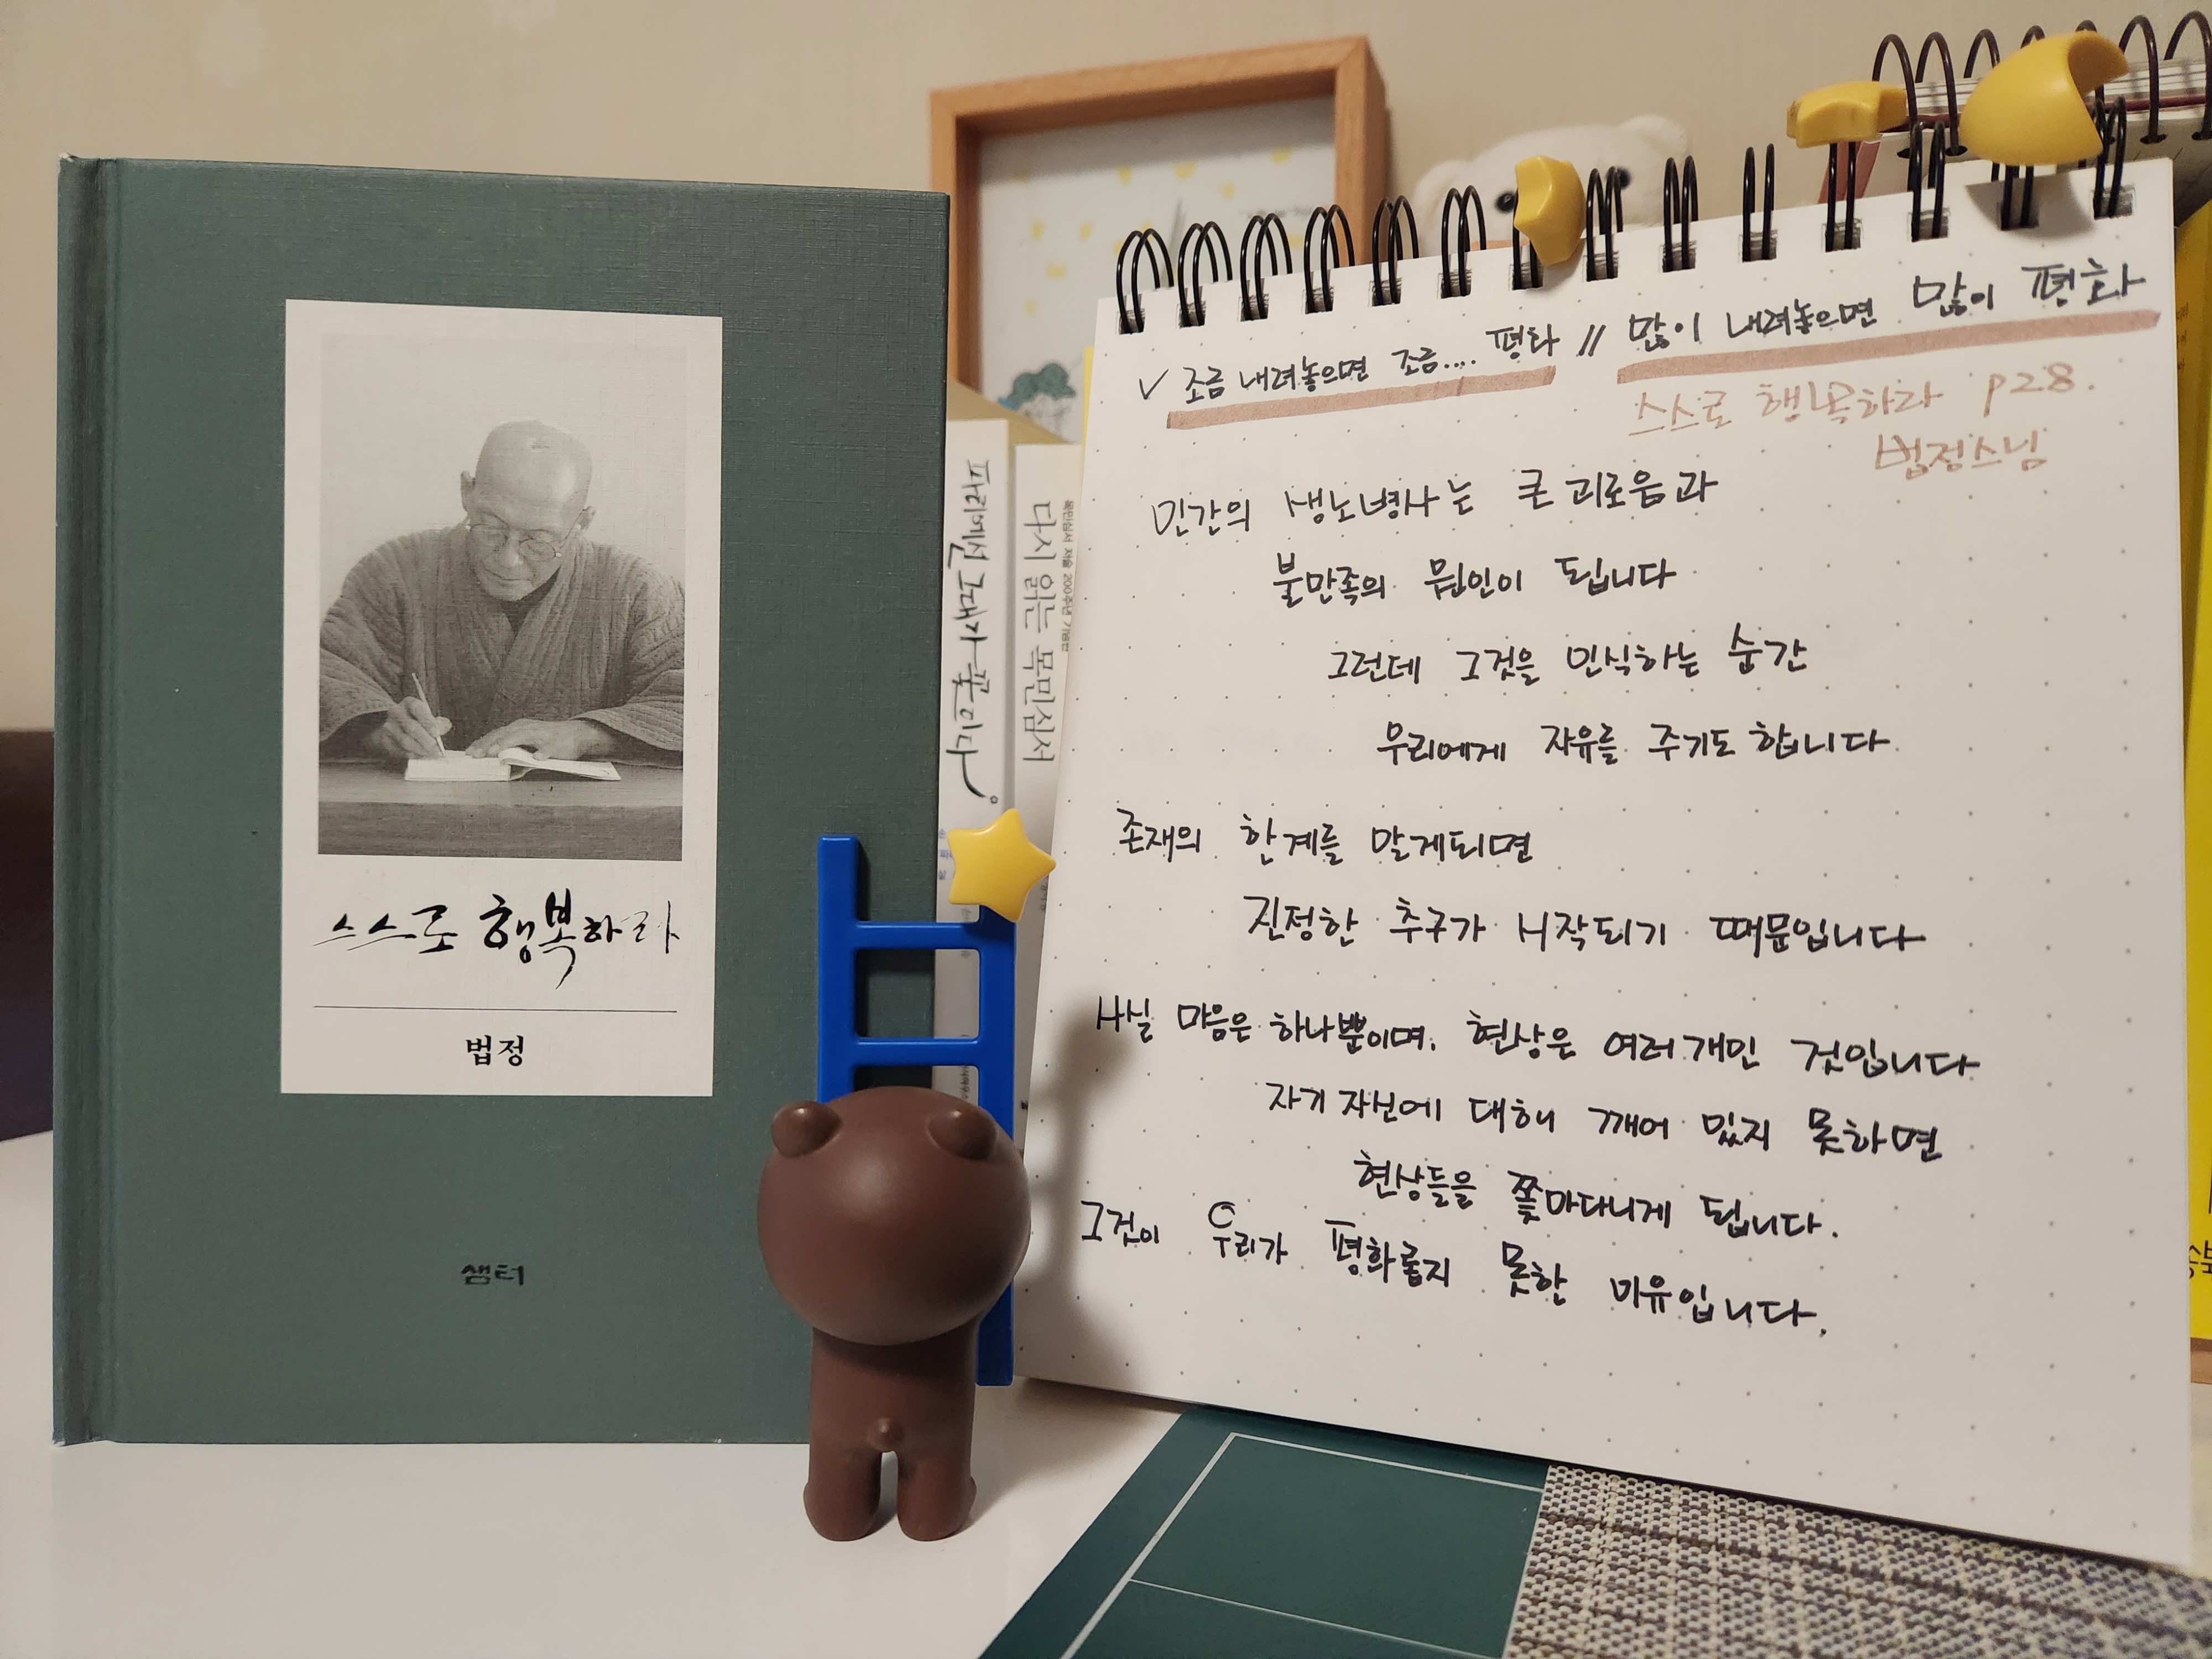 스스로 행복하라
법정
샘터
파리에선 그대가 꽃이다
목민심서 저술 200주년 기념판
다시 읽는 목민심서
✓ 조금 내려놓으면 조금.... 평화 // 많이 내려놓으면 많이 평화
스스로 행복하라 p28.
법정스님
인간의 생노병사는 큰 괴로움과
불만족의 원인이 됩니다
그런데 그것을 인식하는 순간
우리에게 자유를 주기도 합니다
존재의 한계를 알게되면
진정한 추구가 시작되기 때문입니다
사실 마음은 하나뿐이며. 현상은 여러개인 것입니다
자기 자신에 대해 깨어 있지 못하면
현상들을 쫓아다니게 됩니다.
그것이 우리가 평화롭지 못한 이유입니다.